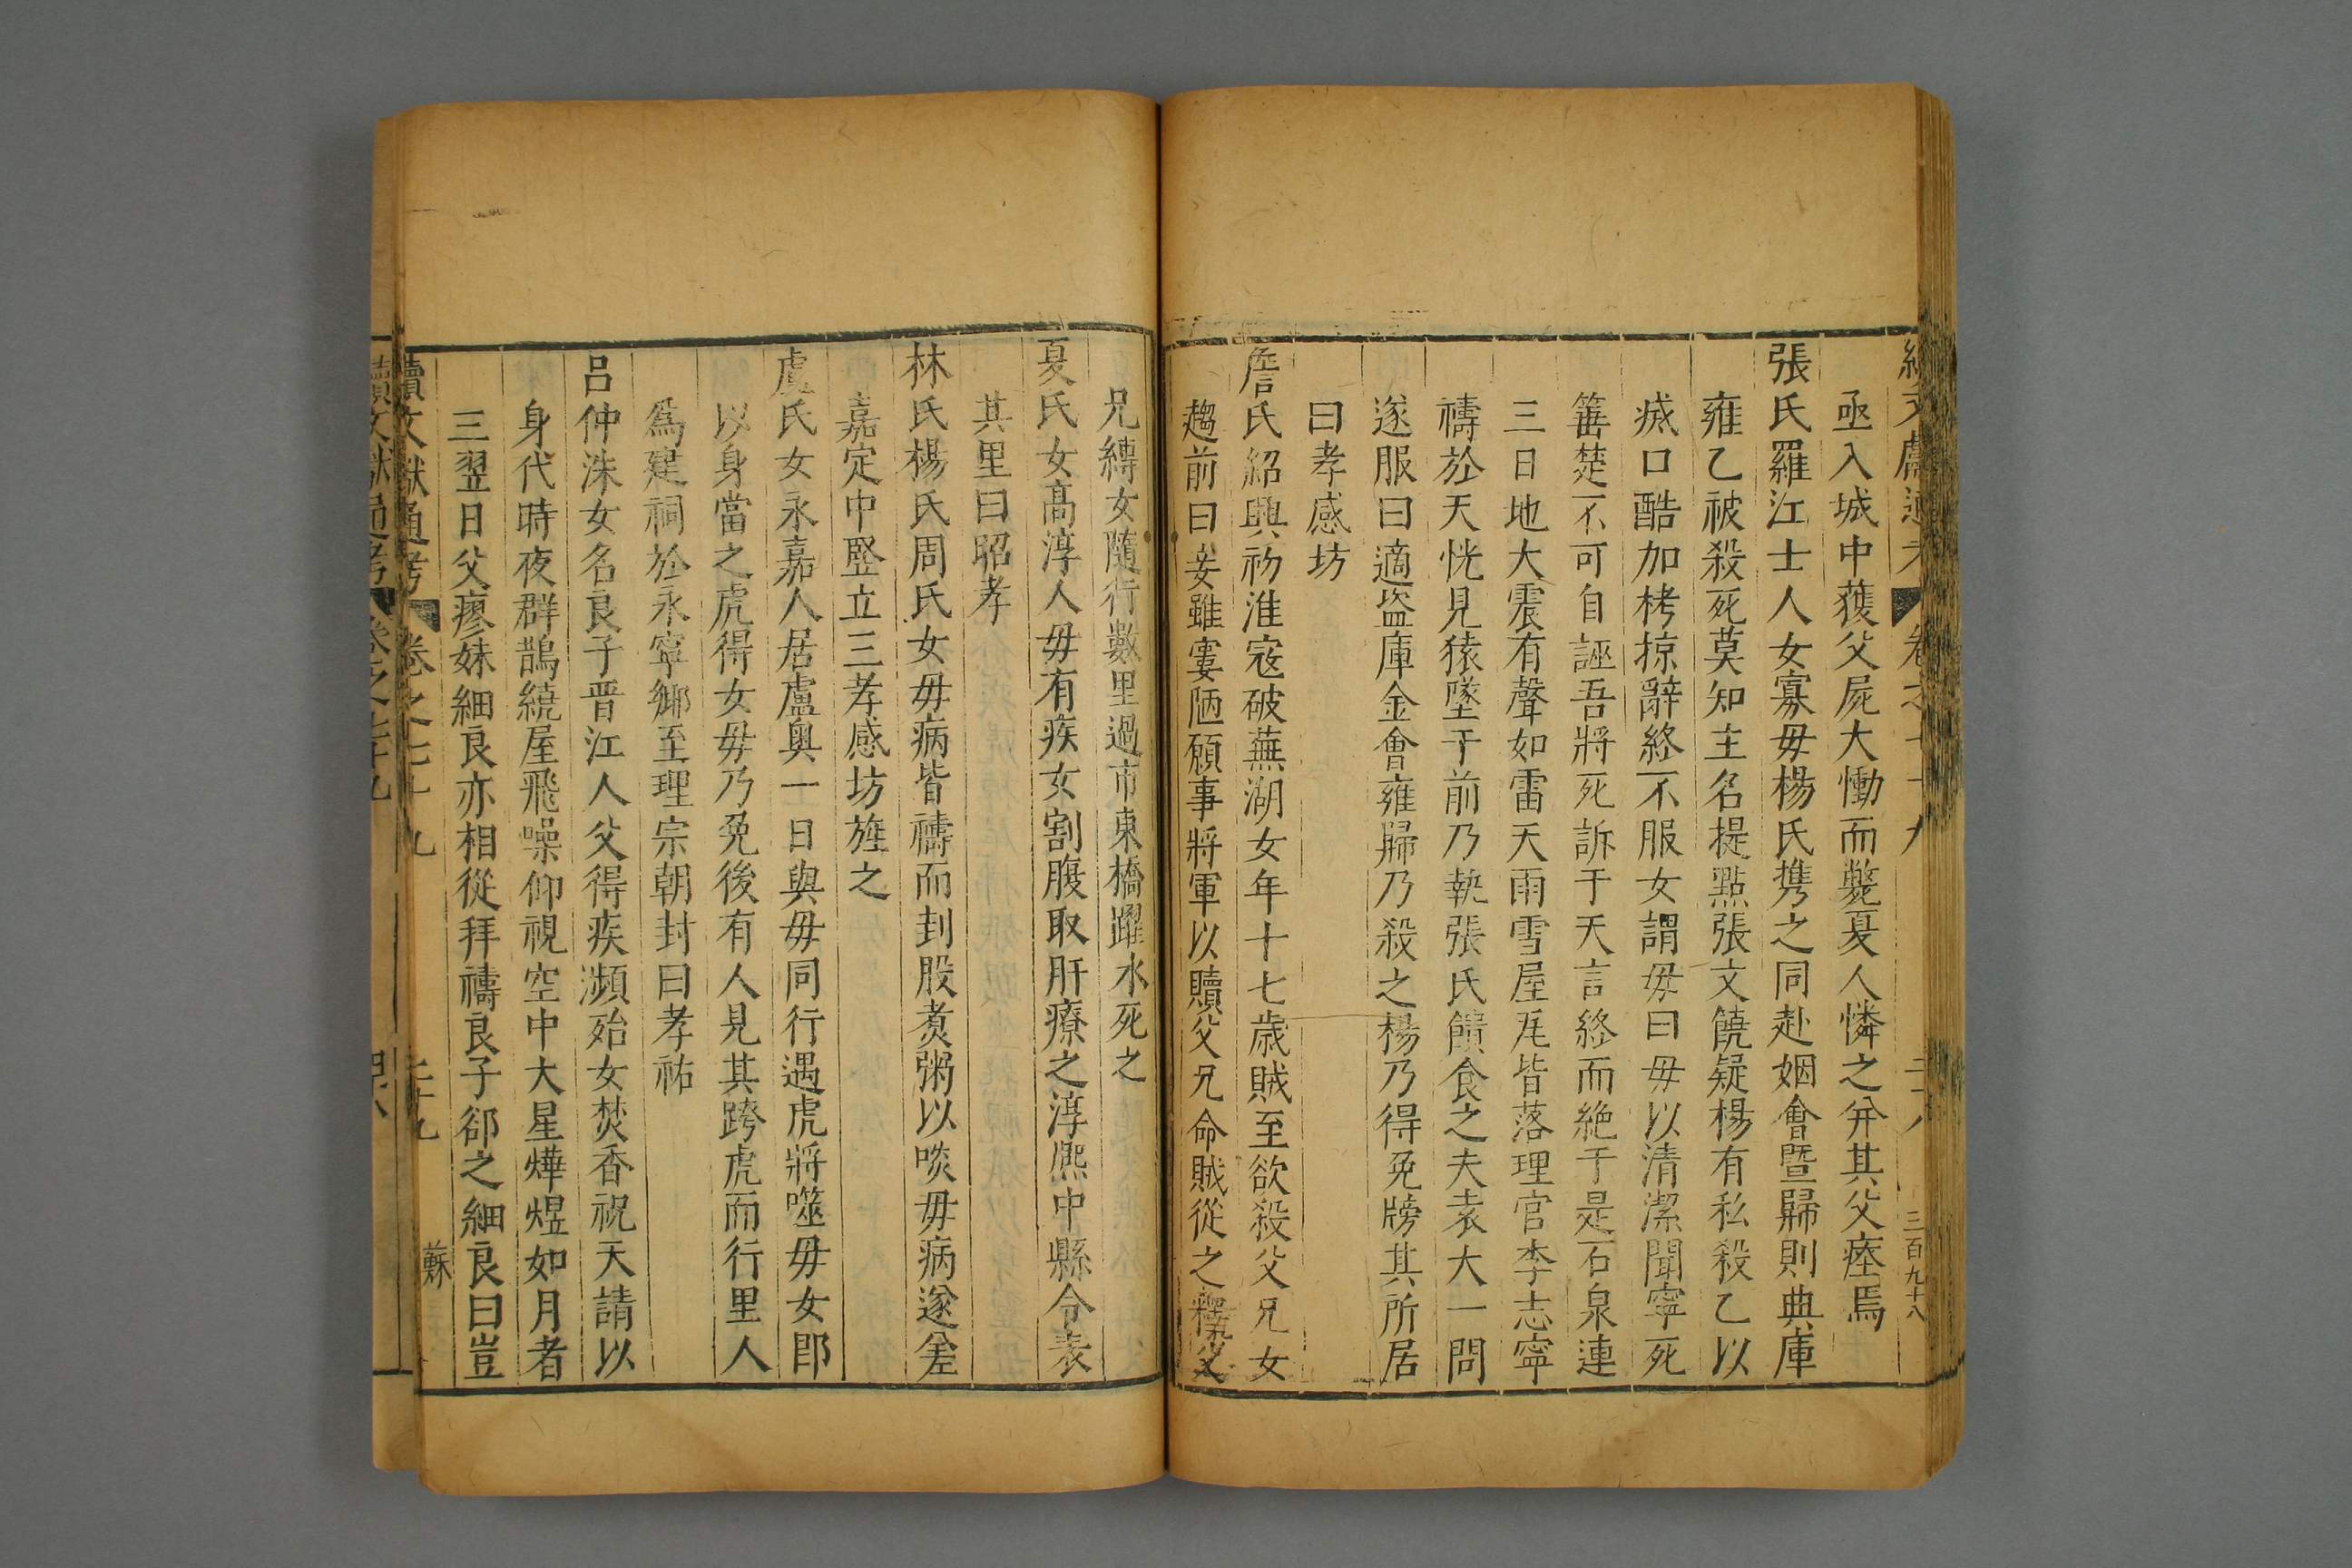 亟入城中獲父屍大慟而斃夏人憐之并其父瘞焉
張氏羅江士人女寡毋楊氏携之同赴姻會暨歸則典庫
雍乙被殺死莫知主名提㸃張文饒疑楊有私殺乙以
㓕口酷加栲掠辭終不服女謂毋曰毋以清潔聞寧死
箠楚不可自誣吾將死訴于天言終而絶于是石泉連
三日地大震有聲如雷天雨雪屋瓦皆落理官李志寧
禱於天恍見猿墜于前乃執張氏饋食之夫袁大一問
遂服曰適盗庫金會雍歸乃殺之楊乃得免牓其所居
曰孝感坊
詹氏紹興初淮寇破蕪湖女年十七歳賊至欲殺父兄女
趨前曰妾雖窶陋願事將軍以贖父兄命賊從之釋父
兄縛女隨行數里過市東橋躍水死之
夏氏女髙淳人毋有疾女割腹取肝療之淳熈中縣令表
其里曰昭孝
林氏楊氏周氏女毋病皆禱而刲股煑粥以啖毋病遂差
嘉定中竪立三孝感坊旌之
盧氏女永嘉人居盧奥一日與毋同行遇虎將噬毋女即
以身當之虎得女毋乃免後有人見其跨虎而行里人
爲建祠於永寧鄉至理宗朝封曰孝祐
吕仲洙女名良子晋江人父得疾瀕殆女焚香祝天請以
身代時夜群鵲繞屋飛噪仰視空中大星燁煜如月者
三翌日父瘳妹細良亦相從拜禱良子郤之細良曰豈
續文獻通考 卷之七十九 二十九 蘇